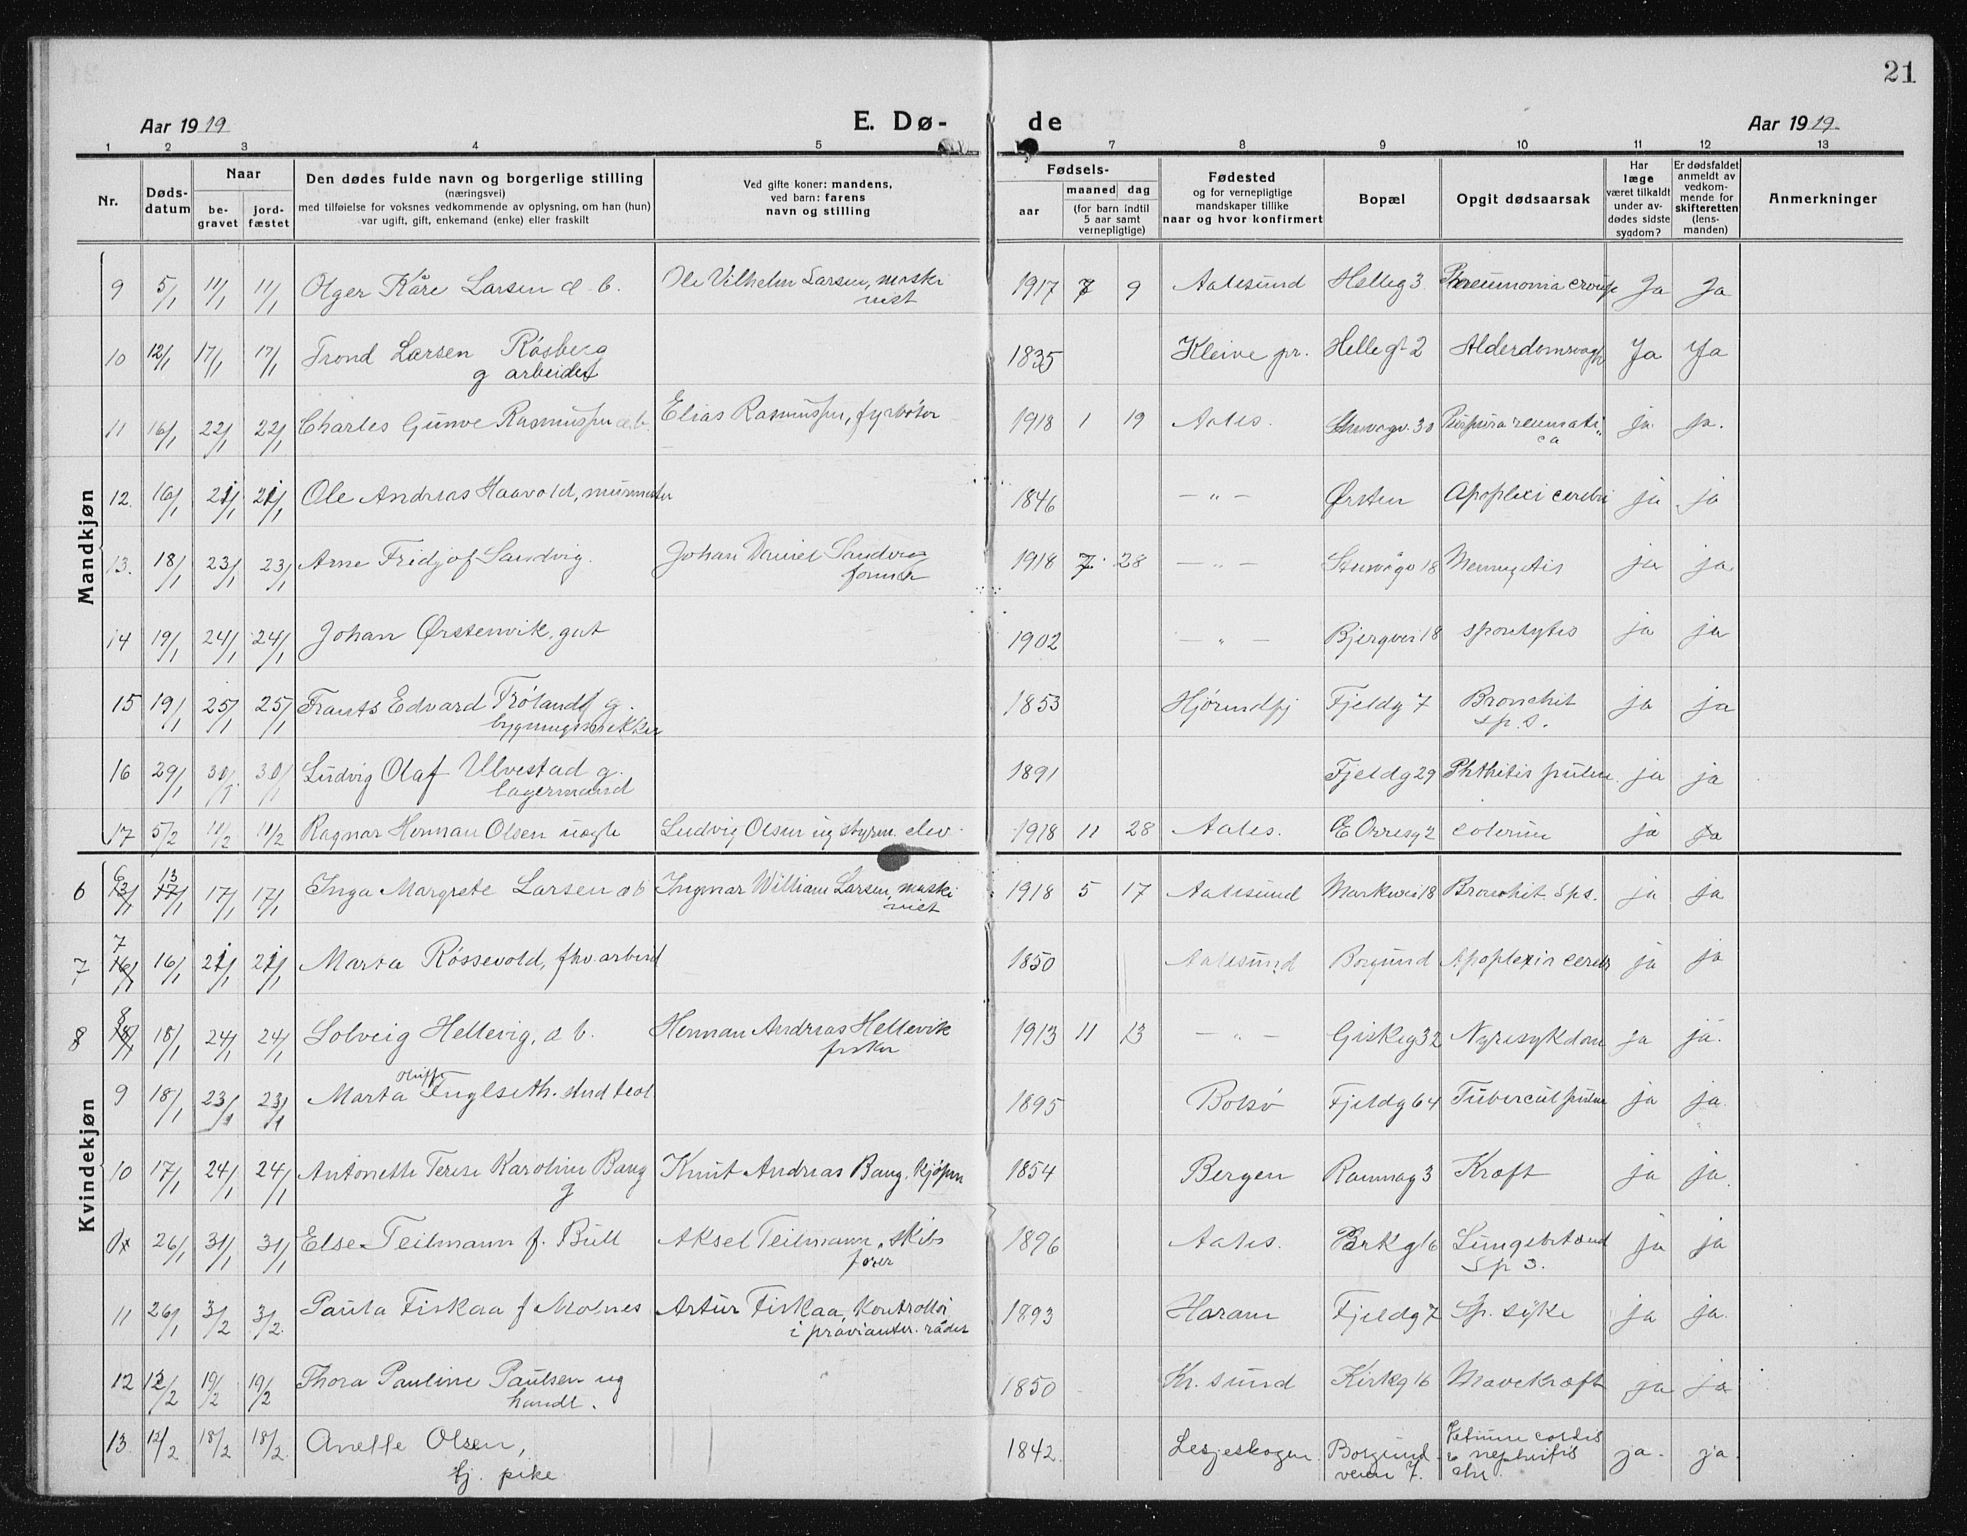 21
Aar 1919
E. Dø-
de
Aar 1919.
1 2 3 4 5 7 8 9 10 11 12 13
Nr.
Døds-
datum
Naar
be-
gravet
jord-
fæstet
Den dødes fulde navn og borgerlige stilling
(næringsvei)
med tilføielse for voksnes vedkommende av oplysning, om han (hun)
var ugift, gift, enkemand (enke) eller fraskilt
Ved gifte koner: mandens,
ved barn: farens
navn og stilling
Fødsels-
aar
maaned dag
(for barn indtil
5 aar samt
vernepligtige)
Fødested
og for vernepligtige
mandskaper tillike
naar og hvor konfirmert
Bopæl
Opgit dødsaarsak
Har
læge
været tilkaldt
under av-
dødes sidste
sygdom?
Er dødsfaldet
anmeldt av
vedkom-
mende for
skifteretten
(lens-
manden)
Anmerkninger
Mandkjøn
9 5/1 11/1 11/1 Olger Kåre Larsen d. b. Ole Vilhelm Larsen, maski
nist
1917 7 9 Aalesund Helleg 3 Pneumonia croup Ja Ja
10 12/1 17/1 17/1 Trond Larsen Røsberg
g arbeider
1835 Kleive pr. Helle gt 2 Ja Ja
11 16/1 22/1 22/1 Charles Gunve Rasmussen d. b. Elias Rasmussen, fyrbøter
1918 1 19 Aales. 30 Purpura reumati
ca ja ja.
12. 16/1 21/1 21/1 Ole Andreas Haavold, murmester
1846 — „ — Ørsten Apoplexi cerebri ja ja
13. 18/1 23/1 23/1 Arne Fridjof Sandvig. Johan Daniel Sandvig
former
1918 7. 28 — „ — 18 ja ja
14 19/1 24/1 24/1 Johan Ørstenvik, gut
1902 — „ — Bjergvei 18 ja ja
15 19/1 25/1 25/1 Frants Edvard g.
bygningssnekker
1853 Hjørundfj Fjeldg 7 Bronchit
sp. s. ja ja
16 29/1 30/1 30/1 Ludvig Olaf Ulvestad g.
lagermand
1891 Fjeldg 29 Phthitis pulm ja ja
17 5/2 11/2 11/2 Ragnar Herman Olsen uegte Ludvig Olsen ug styrm. elev.
1918 11 28 Aales. E Orresg 2 ja ja
Kvindekjøn
6 6 13/1 17/1 17/1 Inga Margrete Larsen d b Ingmar William Larsen, maski
nist
1918 5 17 Aalesund Markvei 18 Bronchit. Sps. ja ja
7 7 16/1 21/1 21/1 Marta Røssevold, fhv. arbeid
1850 Aalesund Borgund Apoplexia cerebr ja ja
8 8 18/1 24/1 24/1 Solveig Hellevig, d b. Herman Andreas Hellevik
fisker
1913 11 13 — „ — Giskeg 32 Nyresykdom ja ja.
9 18/1 23/1 23/1 Marta Oluffe Fuglseth. stud teol
1895 Bolsø Fjeldg 64 Tubercul pulm ja ja
10 17/1 24/1 24/1 Antonette Terese Karoline Bang
g Knut Andreas Bang, kjøpm
1854 Bergen Rønneg 3 Kræft ja ja.
26/1 31/1 31/1 Else Teilmann f. Bull Aksel Teilmann, skibs
fører
1896 Aales. 16 Lungebetænd
Sp s. ja ja
11 26/1 3/2 3/2 Paula Fiskaa f Molnes Artur Fiskaa, Kontrollør
i provianter. rådet
1893 Haram Fjeldg 7 Sp. syke ja ja.
12 12/2 19/2 19/2 Thora Pauline Paulsen ug
handl.
1850 Kr. sund Kirkg 16 Mavekræft ja ja
13. 12/2 18/2 18/2 Anette Olsen,
tj. pike
1842. Lesjeskogen. Borgund
veien 7. cordis
nephritis
chr. ja. ja.